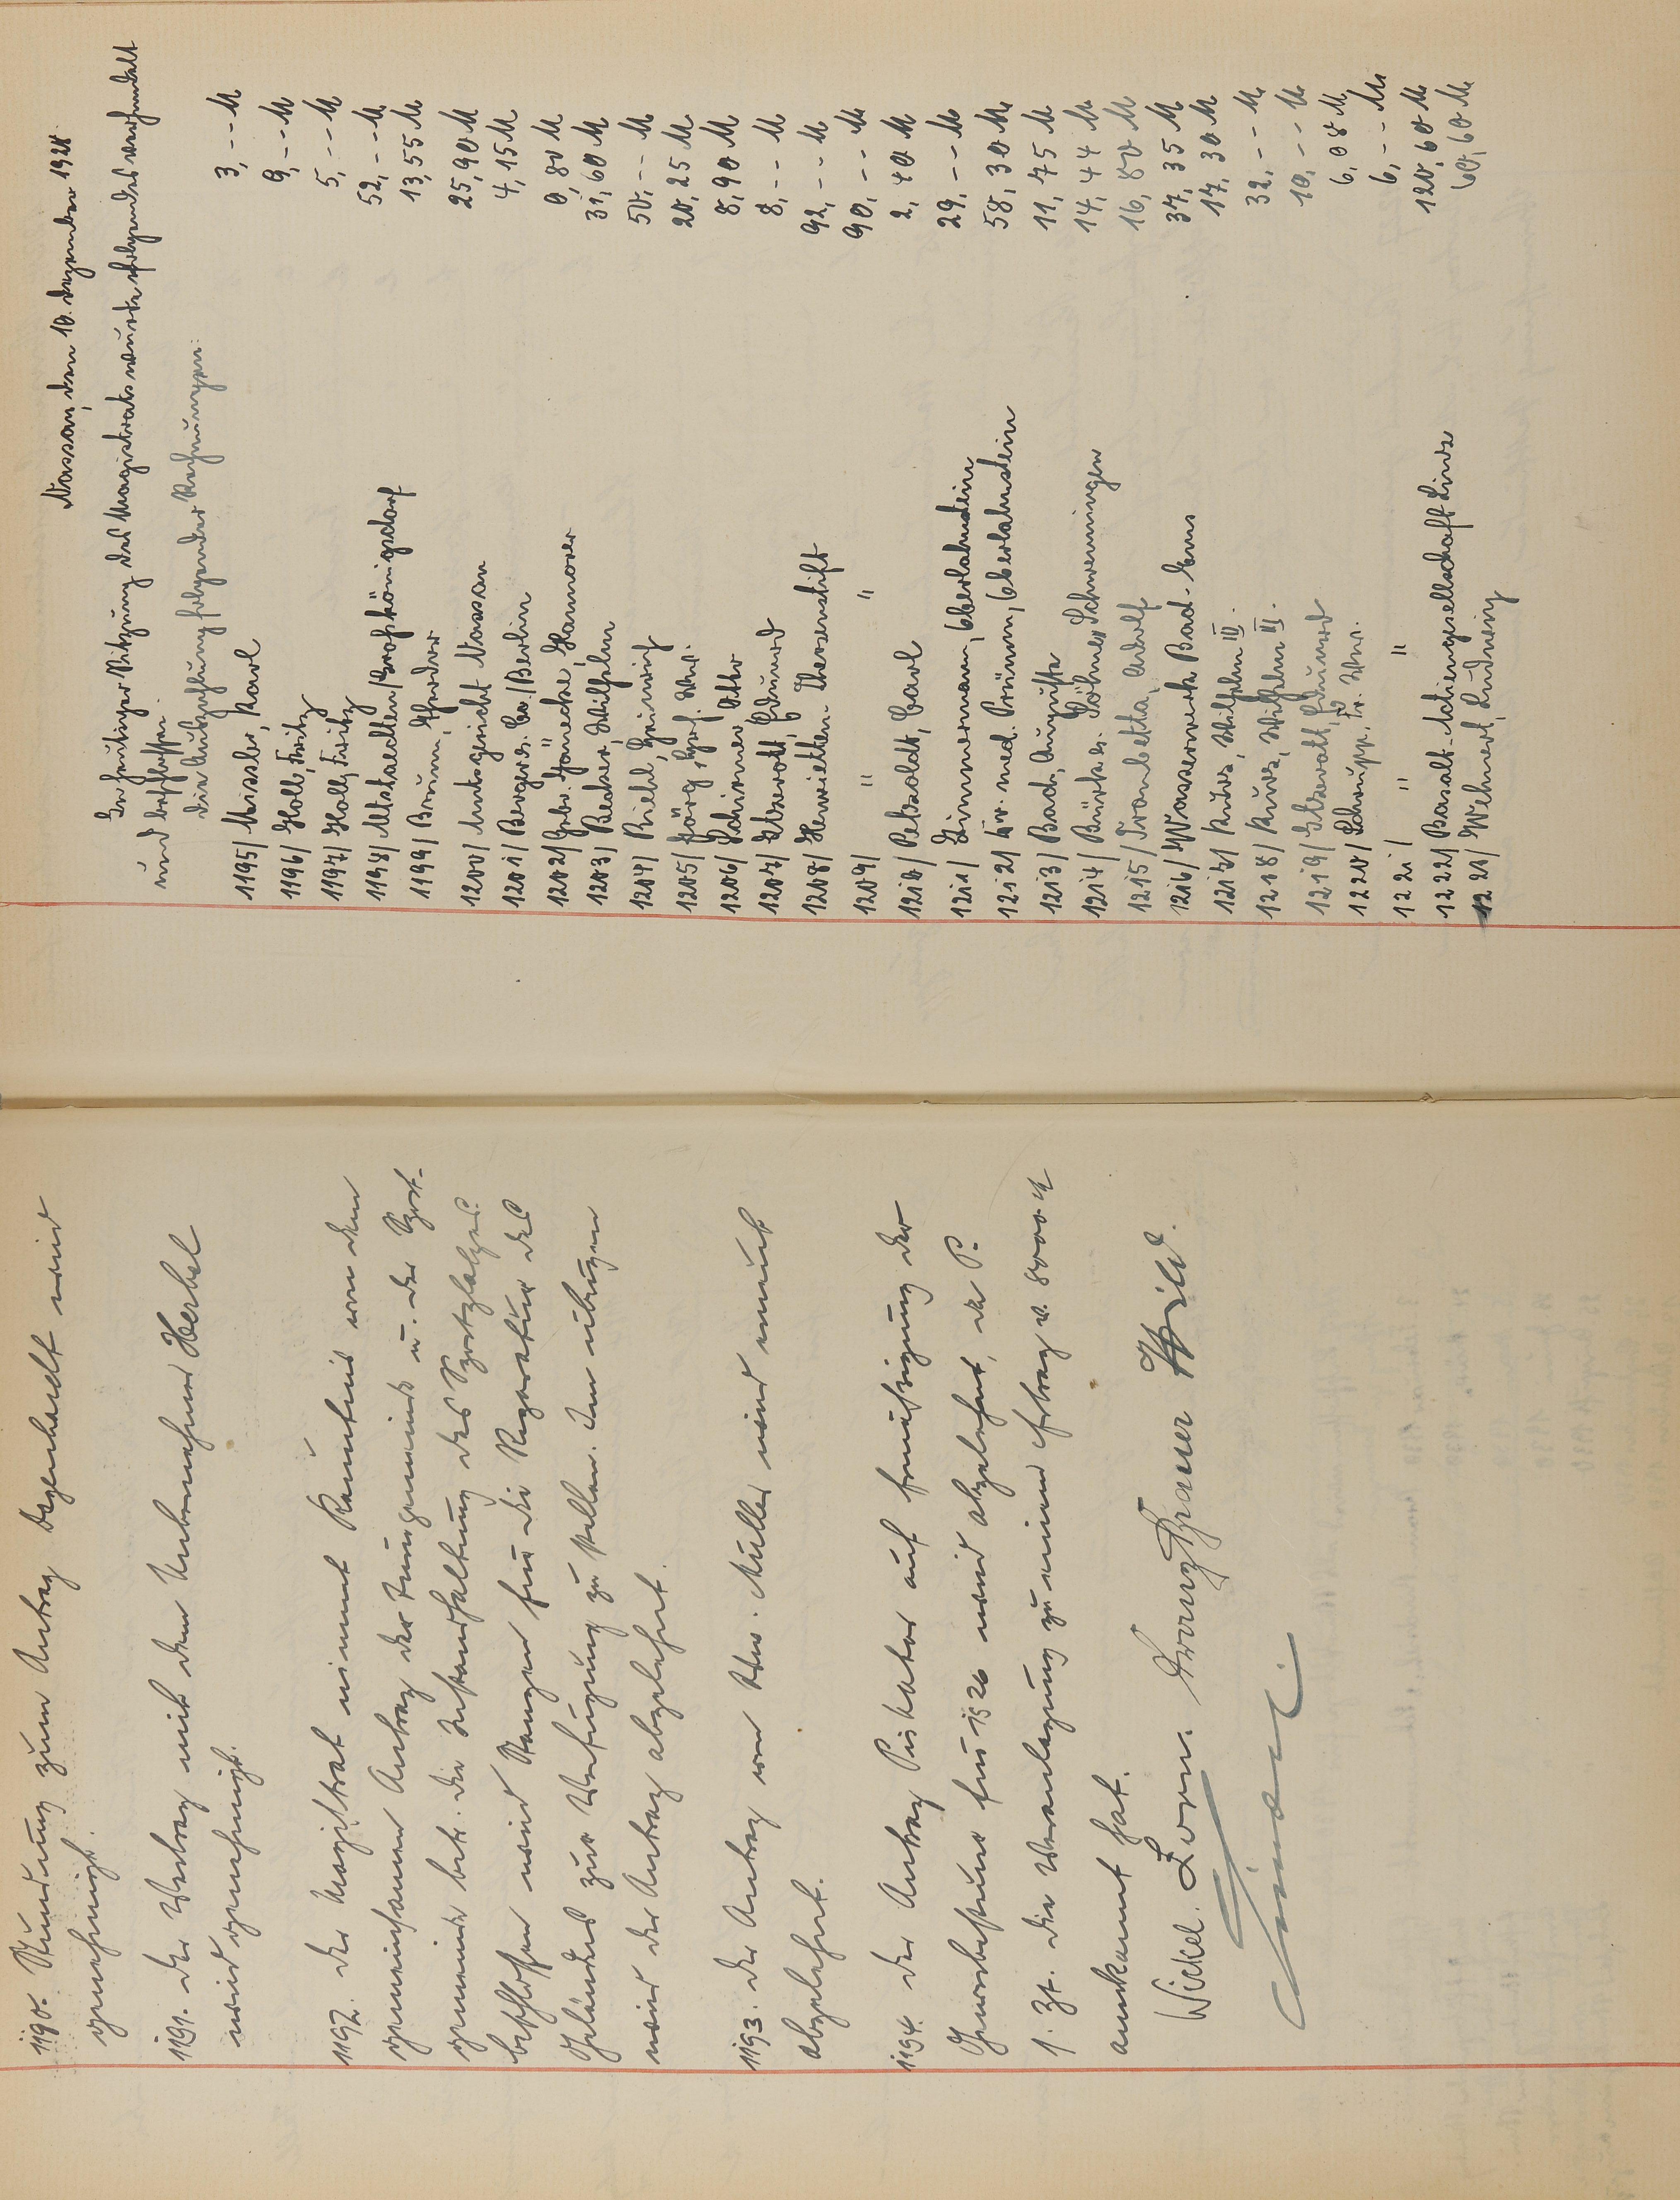 1190. Stundung zum Antrag Degenhardt wird
genehmigt.
1191. Der Vertrag mit dem Unternehmer Herbel
wird genehmigt.
1192. Der Magistrat nimmt Kenntnis von dem
gemeinsamen Antrag der Turngemeinde u. der Sport-
gemeinde betr. die Instandhaltung des Sportplatzes.
beschlossen wird Stangen für die Reparatur des
Geländes zur Verfügung zu stellen. Im übrigen
wird der Antrag abgelehnt.
1193. Der Antrag von Wwe. Müller wird
abgelehnt.
1194. Der Antrag Piskator auf Ermäßigung der
Gewerbesteuer für 1926 wird abgelehnt, da P.
s. Zt. die Veranlagung zu einem Ertrag v. 8000 M
anerkannt hat.
Wickel. Lorn. Franz Brauer Hild.
Nassau, den 10. Dezember 1928
In heutiger Sitzung des Magistrats wurde folgendes verhandelt
und beschlossen.
Die Auszahlung folgender Rechnungen:
1195/ Missler, Karl 3,-- M
1196/ Holl, Fritz 9,-- M
1197/ Holl, Fritz 5,-- M
1198/ Metsaetten/Großkönigsdorf 52,-- M
1199/ Brum, Theodor 13,55 M
1200/ Amtsgericht Nassau 25,90 M
1201/ Berger u. Co./Berlin 4,15 M
1202/ Gebr. Jänecke, Hannover 0,80 M
1203/ Becker, Wilhelm 31,60 M
1204/ Biebl, Heinrich 50,-- M
1205/ Jörg, Chrf. Ww. 20,25 M
1206/ Schirmer, Otto 8,90 M
1207/ Etzerott, Eduard 8,-- M
1208/ Henrietten-Theresenstift 92,-- M
1209/ " " 90,-- M
1210/ Petzoldt, Carl 2,40 M
1211/ Zimmermann, Oberlahnstein 29,-- M
1212/ Dr. med. Brümm, Oberlahnstein 58,30 M
1213/ Bach, Auguste 11,75 M
1214/ Bürk u. Söhne, Schwenningen 14,44 M
1215/ Trombetta, Adolf 16,80 M
1216/ Wasserwerk Bad-Ems 37,35 M
1217/ Kurz, Wilhelm III. 17,30 M
1218/ Kurz, Wilhelm III. 32,-- M
1219/ Etzerott, Eduard 10,-- M
1220/ Schrupp, Fr. Ww. 6,08 M
1221/ " " 6,-- M
1222/ Basalt-Actiengesellschaft Linz 120,60 M
1223/ Wehnert, Ludwig 60,60 M